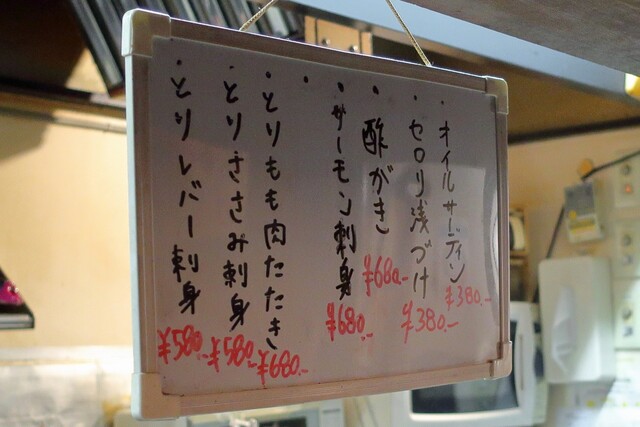 ・オイルサーディン ¥380.-
・セロリ浅づけ ¥380.-
・酢がき ¥680.-
・サーモン刺身 ¥680.-
・
・とりもも肉たたき ¥680.-
・とりささみ刺身 ¥580.-
・とりレバー刺身 ¥580.-